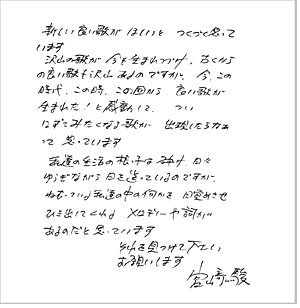 新しい良い歌が ほしいと つくづく思って
います
沢山の歌が 今も生まれつづけ、古くから
の良い歌も沢山あるのですが、今、この
時代、この時、この国から 良い歌が
生まれた!と感動して、つい
口ずさみたくなる歌が 出現したらなあ
って 思っています
私達の生活の様子は 日々
ゆらぎながら 日を送っているのですが、
ねむっている私達の中の何かを 目覚めさせ
ひき出してくれる メロディーや詞が
あるのだと思っています
それを見つけて下さい
お願いします
宮崎駿